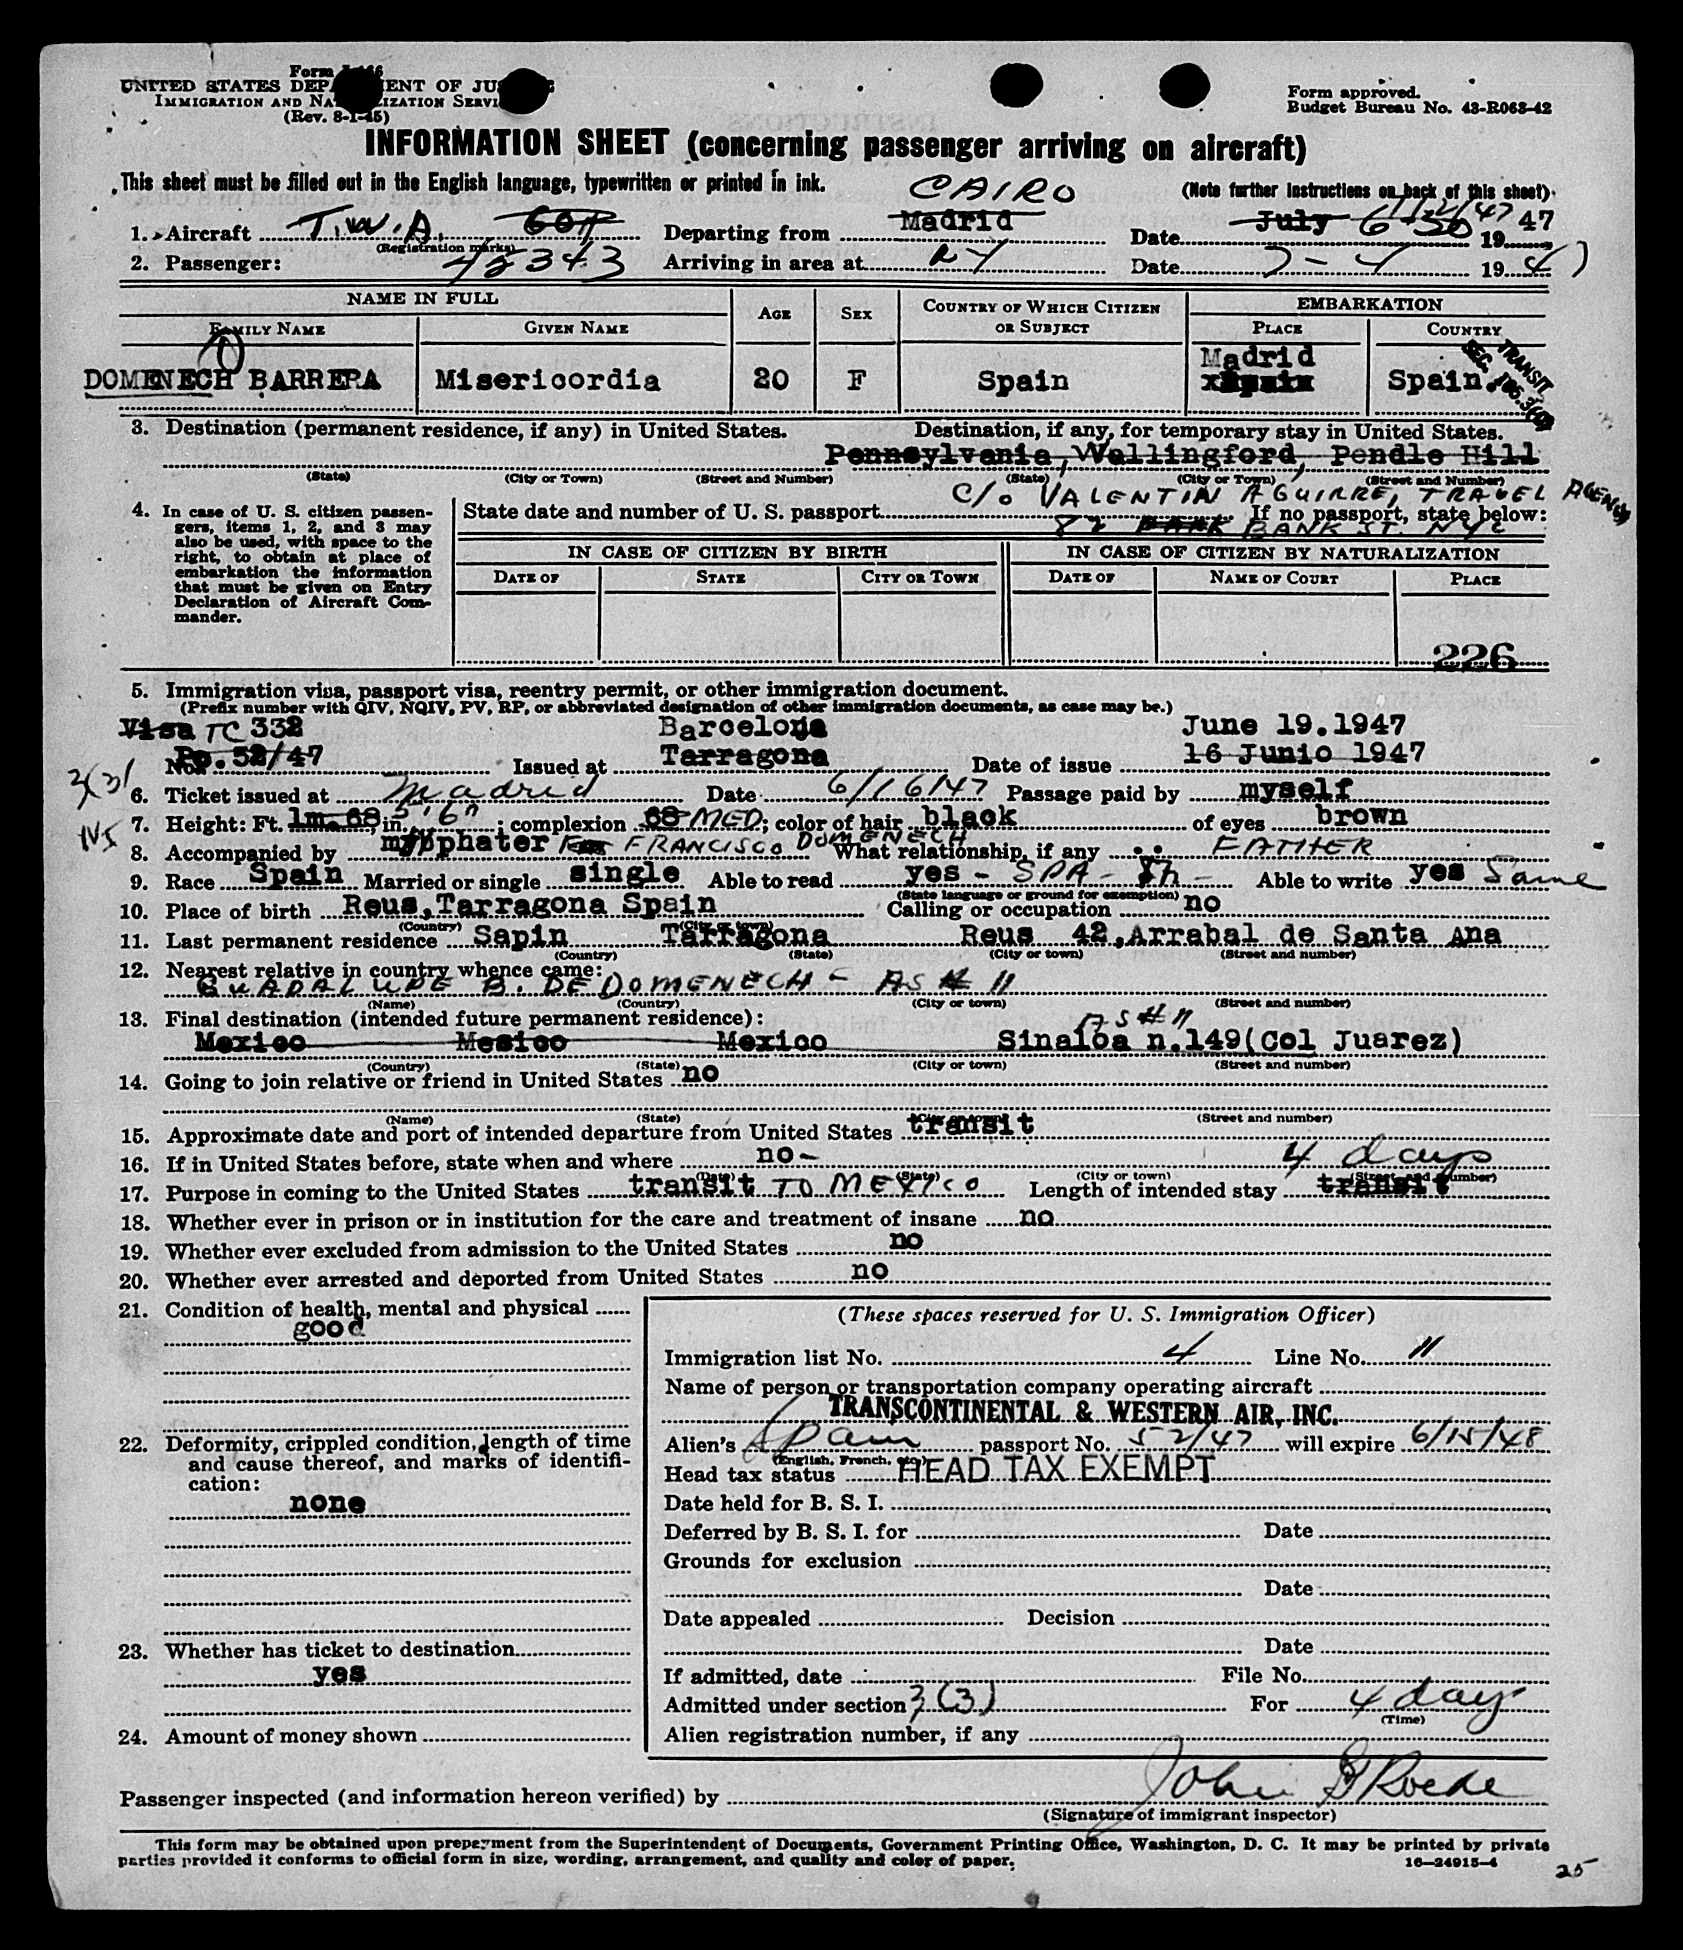 Form I-466
UNITED STATES DEPARTMENT OF JUSTICE
IMMIGRATION AND NATURALIZATION SERVICE
(Rev. 8-1-45)
Form approved.
Budget Bureau No. 43-R063-42
INFORMATION SHEET (concerning passenger arriving on aircraft)
This sheet must be filled out in the English language, typewritten or printed in ink.
(Note further instructions on back of this sheet)
CAIRO
1. Aircraft T.W.A. 607 Departing from Madrid Date July 6-30 1947
(Registration marks)
2. Passenger: 42343 Arriving in area at NY Date 7-4 1947
NAME IN FULL AGE SEX COUNTRY OF WHICH CITIZEN OR SUBJECT EMBARKATION
FAMILY NAME GIVEN NAME PLACE COUNTRY
DOMENECH BARRERA Misericordia 20 F Spain Madrid Spain.
TRANSIT
3. Destination (permanent residence, if any) in United States. Destination, if any, for temporary stay in United States.
Pennsylvania, Wallingford, Pendle Hill
(State) (City or Town) (Street and Number) (State) (City or Town) (Street and Number)
C/O VALENTIN AGUIRRE, TRAVEL AGENCY
82 BANK ST. NYC
4. In case of U. S. citizen passengers, items 1, 2, and 3 may
also be used, with space to the
right, to obtain at place of
embarkation the information
that must be given on Entry
Declaration of Aircraft Commander.
State date and number of U. S. passport If no passport, state below:
IN CASE OF CITIZEN BY BIRTH IN CASE OF CITIZEN BY NATURALIZATION
DATE OF STATE CITY OR TOWN DATE OF NAME OF COURT PLACE
226
5. Immigration visa, passport visa, reentry permit, or other immigration document.
(Prefix number with QIV, NQIV, PV, RP, or abbreviated designation of other immigration documents, as case may be.)
Visa TC 332 Barcelona June 19.1947
No. Pp. 52/47 Issued at Tarragona Date of issue 16 Junio 1947
3(3)
6. Ticket issued at Madrid Date 6/16/47 Passage paid by myself
7. Height: Ft. 1m. 68, in. 5'6"; complexion 68 MED; color of hair black of eyes brown
8. Accompanied by my phater FRANCISCO DOMENECH What relationship, if any FATHER
9. Race Spain Married or single single Able to read yes - SPA - Able to write yes Same
(State language or ground for exemption)
10. Place of birth Reus, Tarragona Spain Calling or occupation no
(Country) (City or town)
11. Last permanent residence Sapin Tarragona Reus 42, Arrabal de Santa Ana
(Country) (State) (City or town) (Street and number)
12. Nearest relative in country whence came:
GUADALUPE B. DE DOMENECH - AS # 11
(Name) (Country) (City or town) (Street and number)
13. Final destination (intended future permanent residence): AS # 11
Mexico Mesico Mexico Sinaloa n.149(Col Juarez)
(Country) (State) (City or town) (Street and number)
14. Going to join relative or friend in United States no
(Name) (State) (City or town) (Street and number)
15. Approximate date and port of intended departure from United States transit
16. If in United States before, state when and where no-
(Date) (State) (City or town) (Street and number)
4 days
17. Purpose in coming to the United States transit TO MEXICO Length of intended stay transit
18. Whether ever in prison or in institution for the care and treatment of insane no
19. Whether ever excluded from admission to the United States no
20. Whether ever arrested and deported from United States no
21. Condition of health, mental and physical
good
22. Deformity, crippled condition, length of time
and cause thereof, and marks of identification:
none
23. Whether has ticket to destination
yes
24. Amount of money shown
(These spaces reserved for U. S. Immigration Officer)
Immigration list No. 4 Line No. 11
Name of person or transportation company operating aircraft
TRANSCONTINENTAL & WESTERN AIR, INC.
Alien's Spain passport No. 52/47 will expire 6/15/48
(English, French, etc.)
Head tax status HEAD TAX EXEMPT
Date held for B. S. I.
Deferred by B. S. I. for Date
Grounds for exclusion
Date
Date appealed Decision
Date
If admitted, date File No.
Admitted under section 3(3) For 4 days
(Time)
Alien registration number, if any
Passenger inspected (and information hereon verified) by John
(Signature of immigrant inspector)
This form may be obtained upon prepayment from the Superintendent of Documents, Government Printing Office, Washington, D. C. It may be printed by private
parties provided it conforms to official form in size, wording, arrangement, and quality and color of paper.
16—24915-4
25